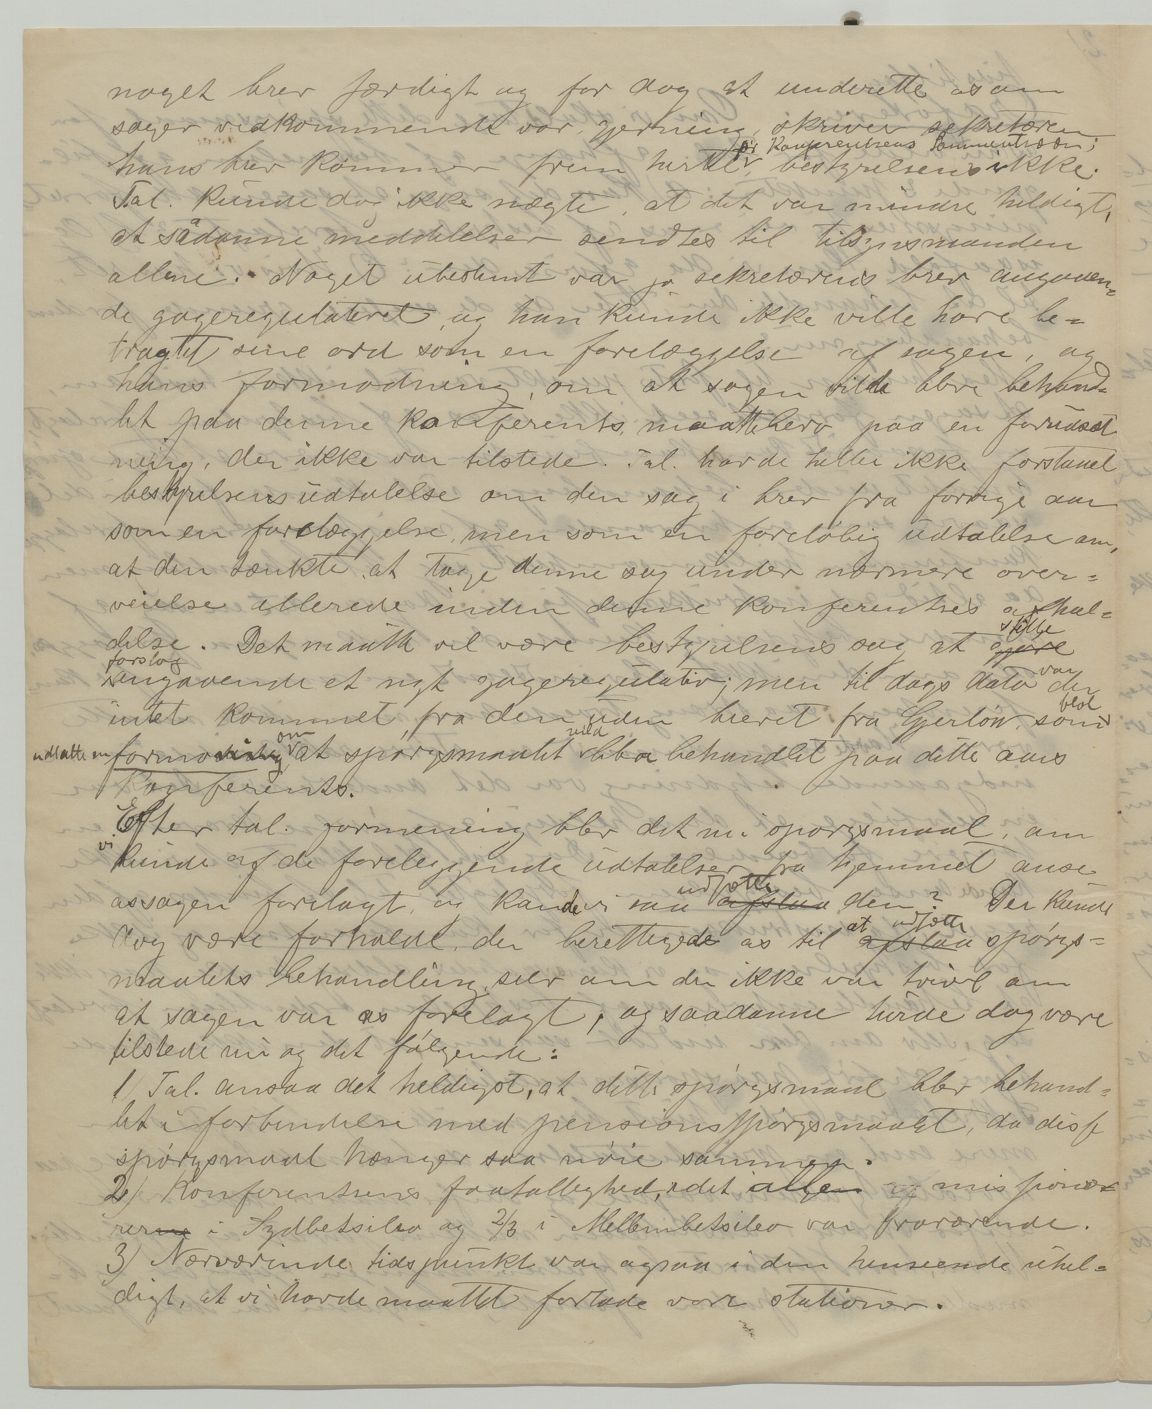 noget brev færdigt og for dog at underette os om
sager vedkommende vor gjerning, skriver sekretæren
før Konferentsens Sammentræden;
hans brev kommer frem hertil, bestyrelsens ikke.
Tal. kunde dog ikke nægte, at det var mindre heldigt,
at sådanne meddelelser sendtes til tilsynsmanden
allene. Noget ubestemt var jo sekretærens brev angaaen=
de gageregulativet, og han kunde ikke ville have be=
tragtet sine ord som en forelæggelse af sagen, og
hans formodning, om at sagen vilde blive behand=
let paa denne konferents, maatte bero paa en forudsæt
ning, der ikke var tilstede. Tal. havde heller ikke forstaaet
bestyrelsens udtalelse om den sag i brev fra forrige aar
som en forelæggelse, men som en foreløbig udtalelse om,
at den tænkte at tage denne sag under nærmere over=
veielse allerede inden denne konferentses afhol=
delse. Det maatte vel være bestyrelsens sag at gjøre
stille
forslag
angaaende et nyt gageregulativ; men til dags dato var der
intet kommet fra den uden brevet fra Gjerløw, som blot
udtalte en formodning om at spørgsmaalet vild blive behandlet paa dette aars
Konferents.
Efter tal. formening blev det nu spørgsmaal, om
vi kunde af de foreleggende udtalelser fra hjemmet anse
os sagen forelagt, og kande vi saa afslaa udsætte den? Der kunde
dog være forhold, der berettigede os til at afslaa udsætte spørgs=
maalets behandling, selv om der ikke var tvivl om
at sagen var os forelagt, og saadanne turde dog være
tilstede nu og det følgende:
1) Tal. ansaa det heldigst, at dette spørgsmaal blev behand=
let i forbindelse med pensionsspørgsmaalet, da disse
spørgsmaal hænger saa nøie sammen.
2) Konferentsens faatallighed, idet allen af missionæ=
rerne i Sydbetsileo og 2/3 i Mellembetsileo var fraværende.
3) Nærværende tidspunkt var ogsaa i den henseende uhel=
digt, at vi havde maattet forlade vore stationer.